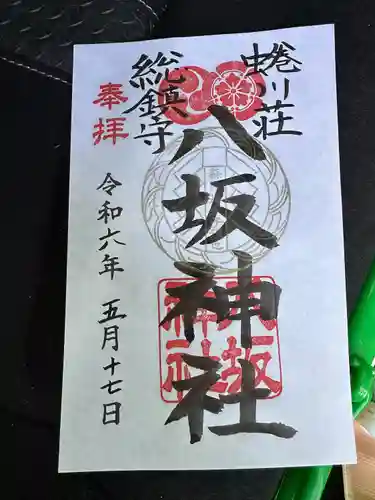 蜷川荘
総鎮守
八坂神社
奉拝
令和六年 五月十七日
八坂
神社